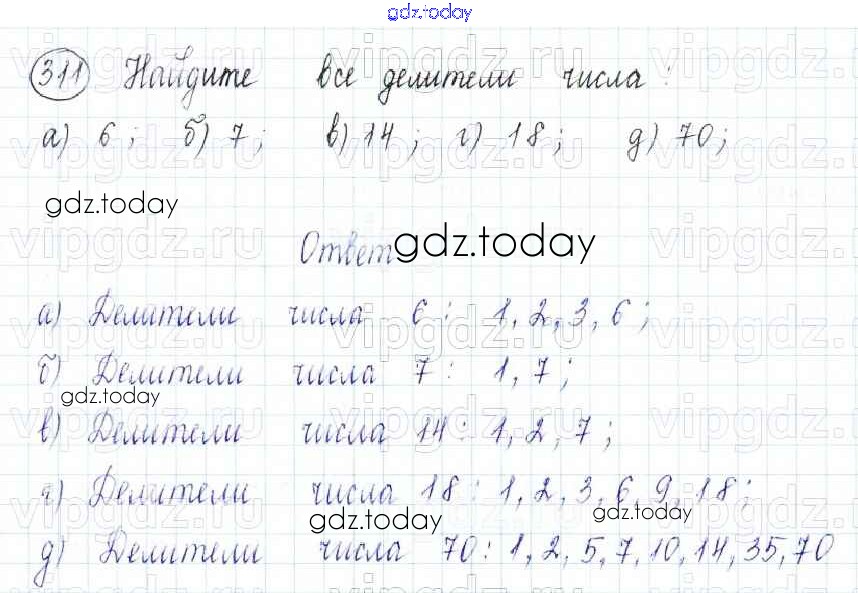 gdz.today
311 Найдите все делители числа:
а) 6; б) 7; в) 14; г) 18; д) 70;
gdz.today
Ответ gdz.today
а) Делители числа 6: 1, 2, 3, 6;
б) Делители числа 7: 1, 7;
gdz.today
в) Делители числа 14: 1, 2, 7;
г) Делители числа 18: 1, 2, 3, 6, 9, 18;
gdz.today gdz.today
д) Делители числа 70: 1, 2, 5, 7, 10, 14, 35, 70
vipgdz.ru